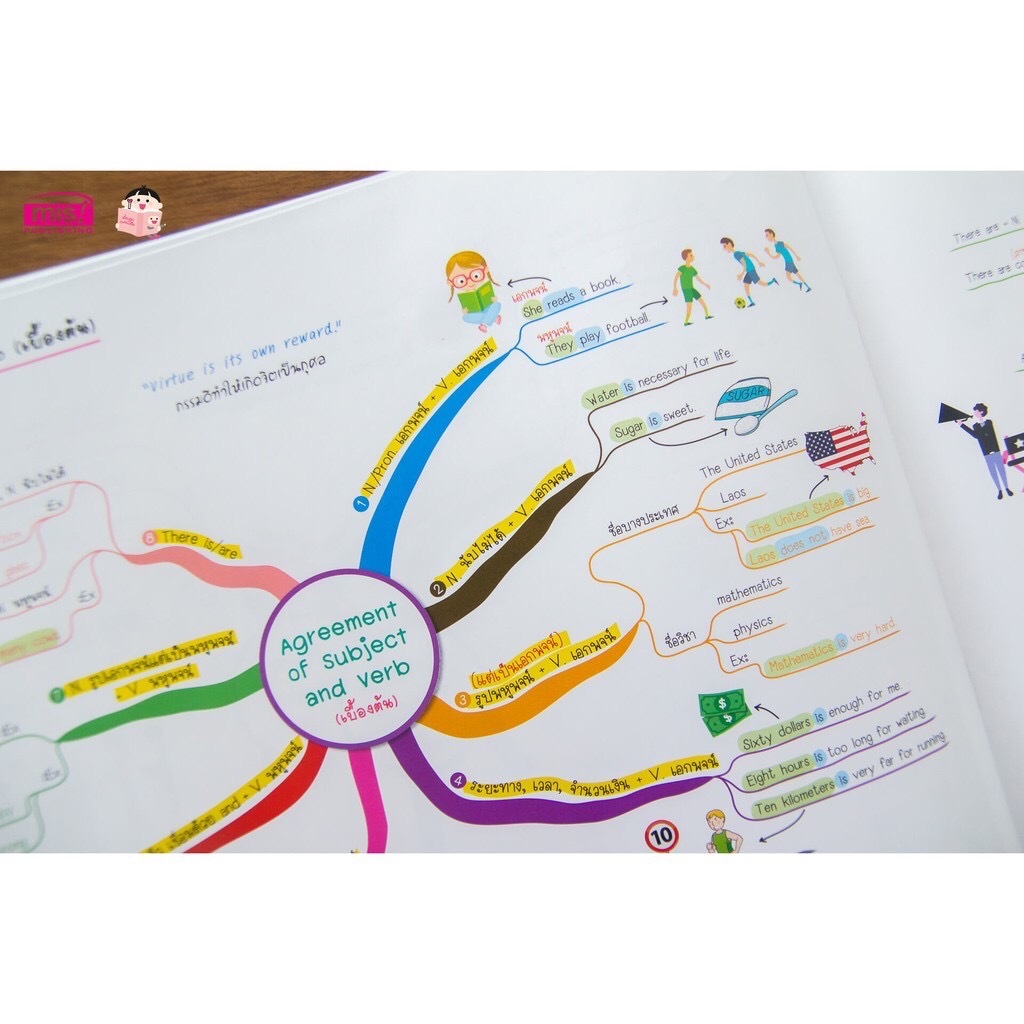 MIS
(เบื้องต้น)
"Virtue is its own reward."
กรรมดีทำให้เกิดจิตเป็นกุศล
Agreement
of subject
and verb
(เบื้องต้น)
1 N./Pron. เอกพจน์ + V. เอกพจน์
เอกพจน์
She reads a book.
พหูพจน์
They play football.
2 N. นับไม่ได้ + V. เอกพจน์
Water is necessary for life.
Sugar is sweet.
SUGAR
3 (แต่เป็นเอกพจน์)
รูปพหูพจน์ + V. เอกพจน์
ชื่อบางประเทศ
The United States
Laos
Ex:
The United States is big.
Laos does not have sea.
ชื่อวิชา
mathematics
physics
Ex:
Mathematics is very hard.
4 ระยะทาง, เวลา, จำนวนเงิน + V. เอกพจน์
Sixty dollars is enough for me.
Eight hours is too long for waiting.
Ten kilometers is very far for running.
10
and + V. พหูพจน์
7 N. รูปเอกพจน์แต่เป็นพหูพจน์
+ V. พหูพจน์
8 There is/are
Ex
Ex
There are + N.
There are